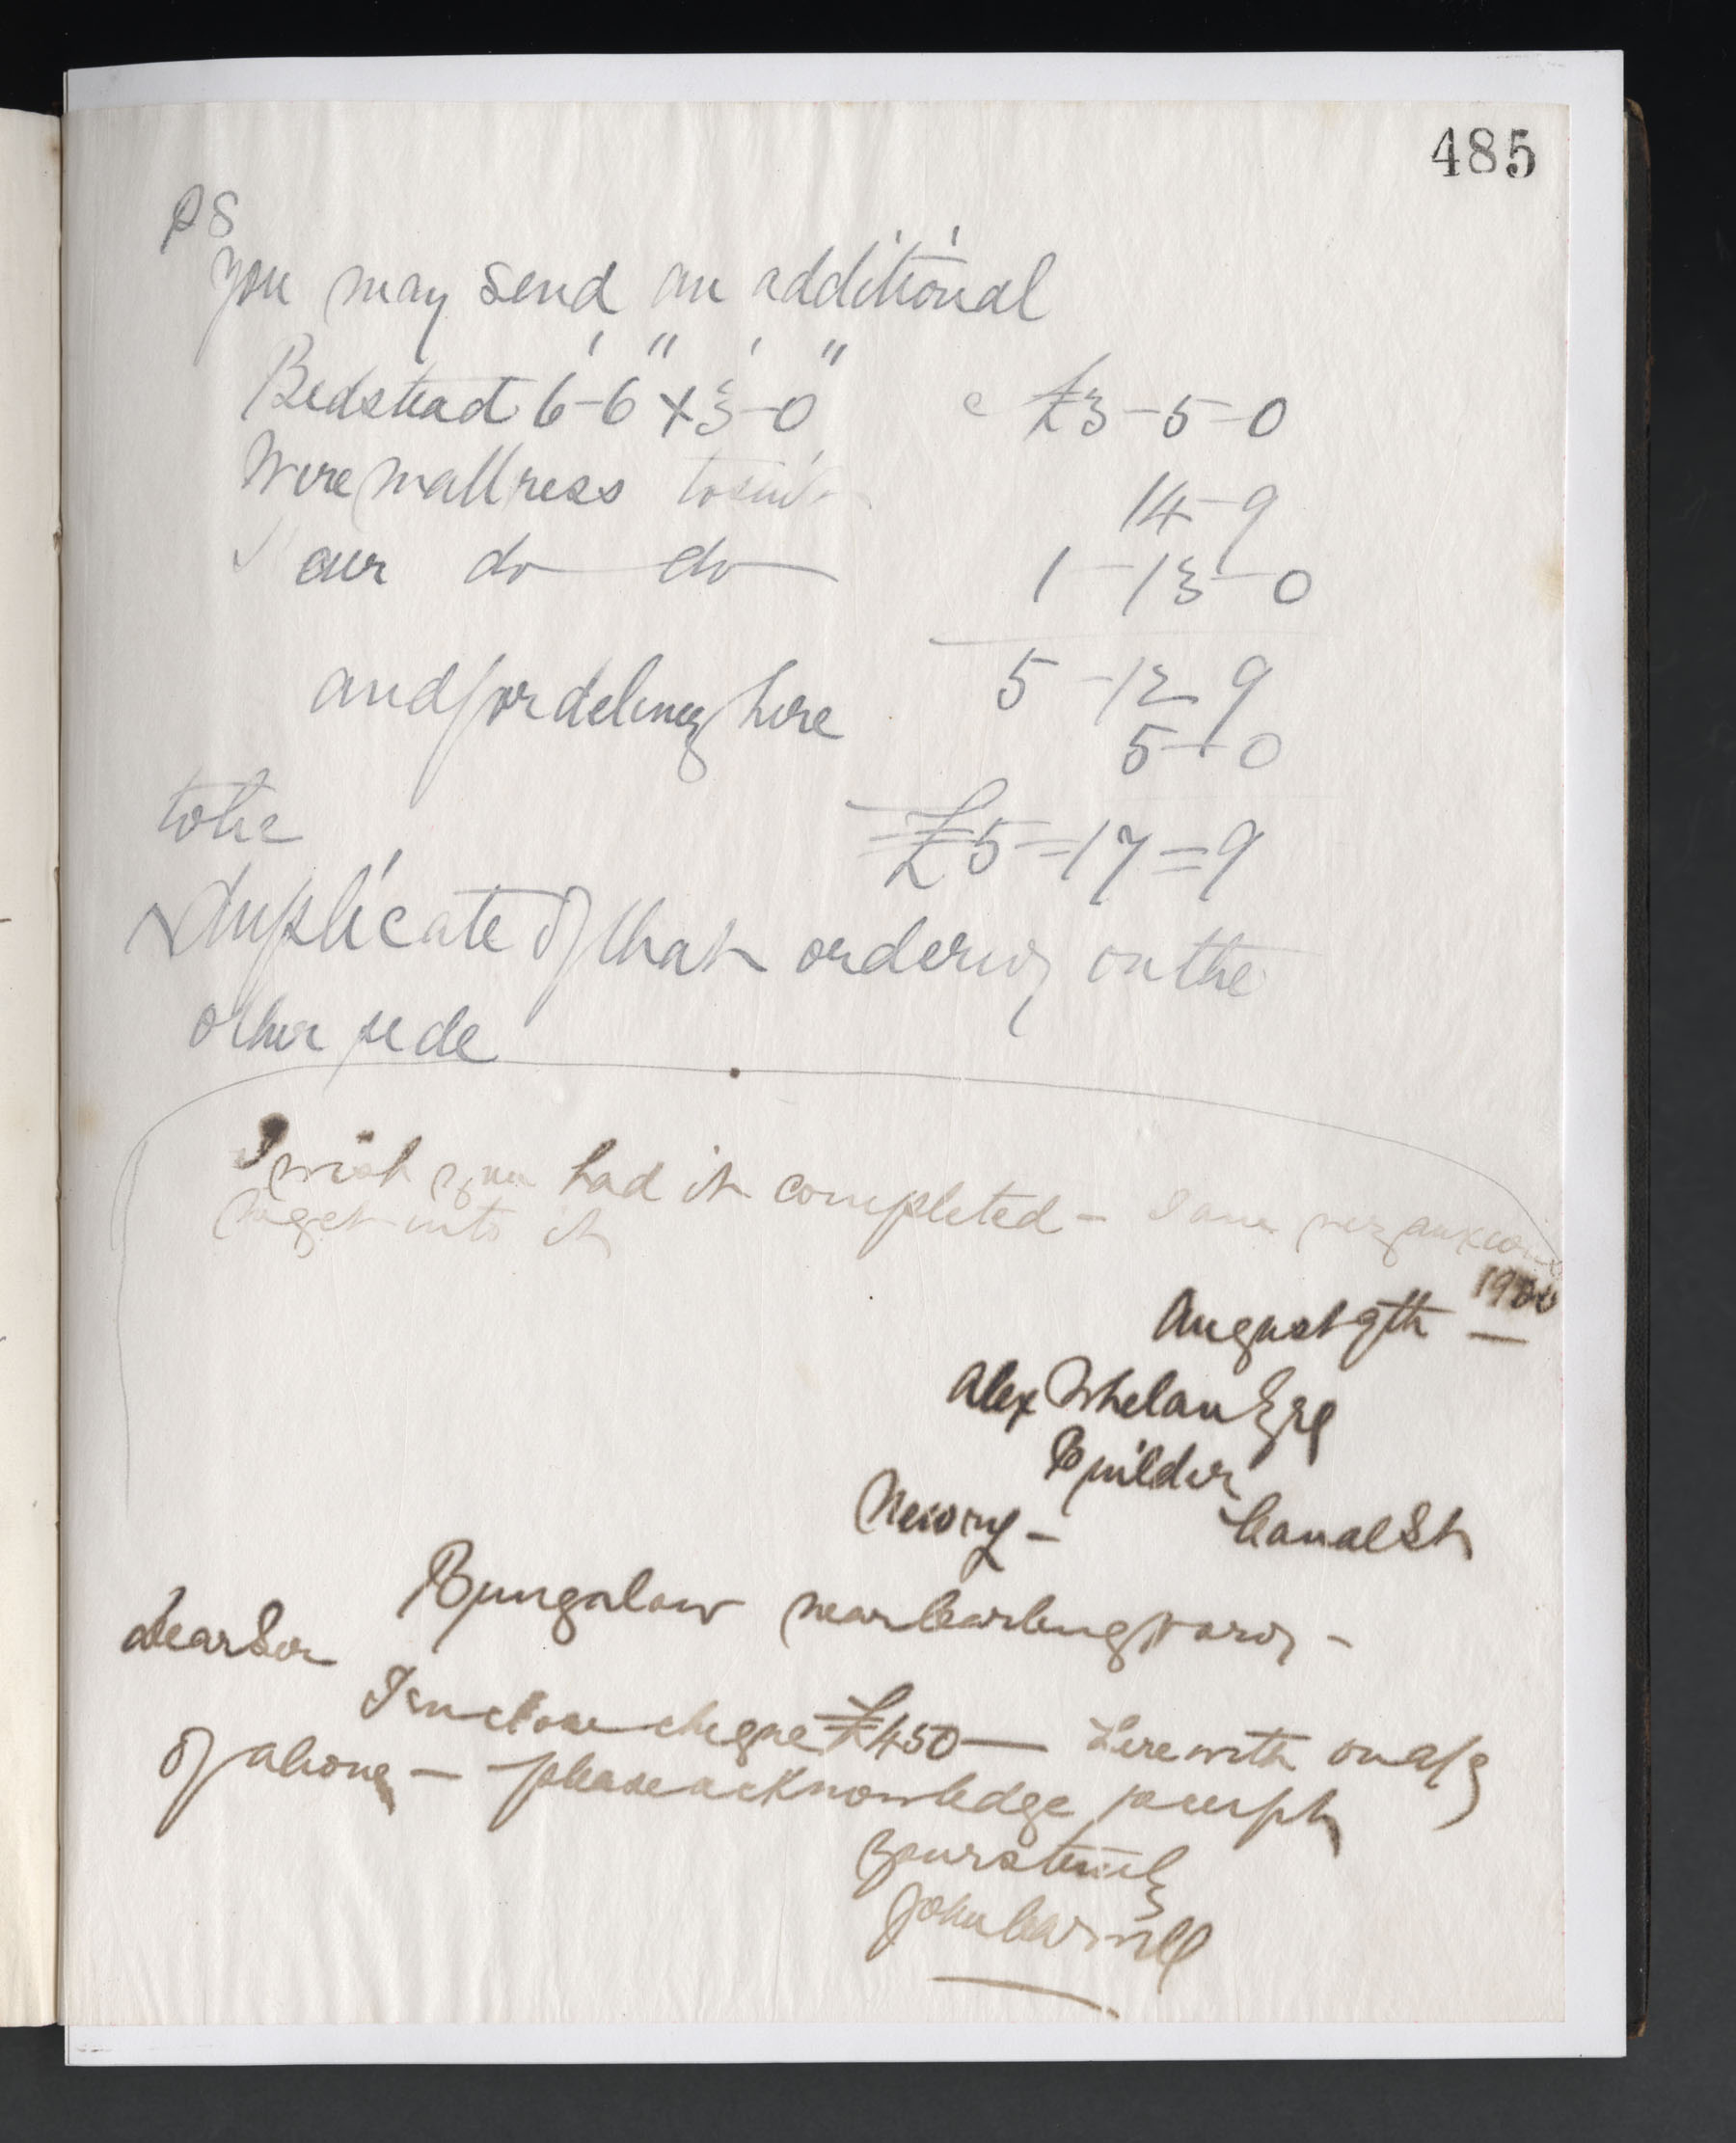 485
PS
You may send an additional
Bedstead 6'-6" x 3'-0" @ £3-5-0
Wire mattress to suit 14-9
Hair do do 1-13-0
5-12 9
and for delivery here 5-0
£5=17=9
to be
duplicate of that ordering on the
other side
I wish you had it completed - I am very anxious
to get into it
August 9th 1900
Alex Whelan Esq
Builder
Newry - Canal St
Bungalow near Carlingford -
Dear Sir
I enclose cheque £450 — herewith on a/c
of above - please acknowledge receipt
Yours truly
John Carvill